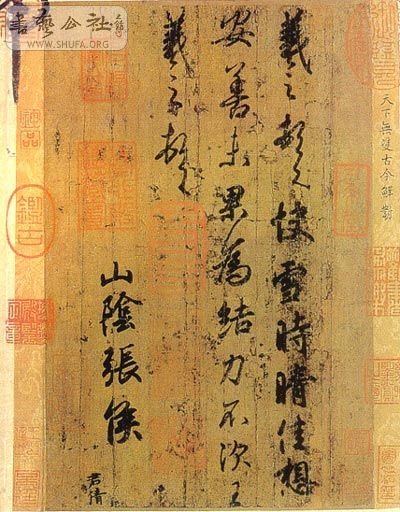 書藝公社
WWW.SHUFA.ORG
天下無雙古今鮮對
羲之頓首快雪時晴佳想
安善未果為結力不次王
羲之頓首
山陰張侯
君倩
神品
鑑古